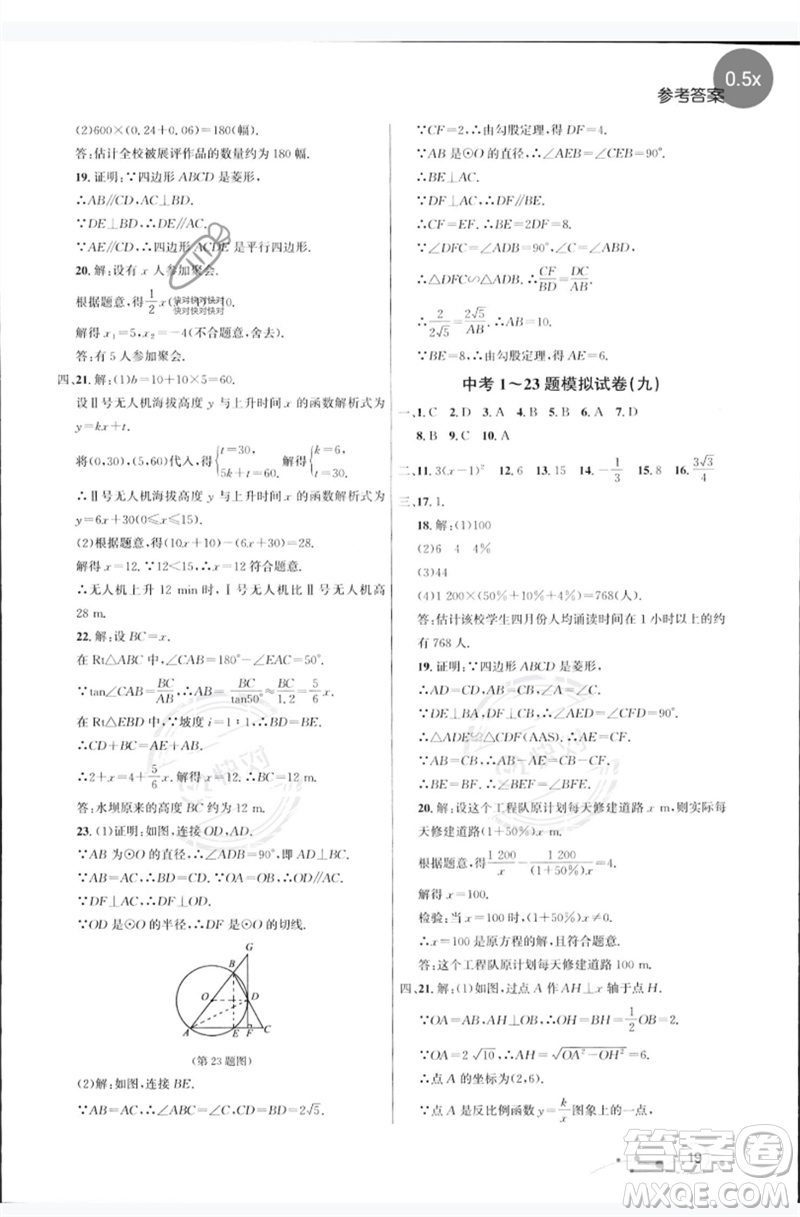 0.5x
参考答案
(2)600×(0.24+0.06)=180(幅).
答:估计全校被展评作品的数量约为 180 幅.
19.证明:∵四边形 ABCD 是菱形,
∴AB∥CD,AC⊥BD.
∵DE⊥BD,∴DE∥AC.
∵AE∥CD,∴四边形 ACDE 是平行四边形.
20.解:设有 x 人参加聚会.
根据题意,得 1/2 x(
10.
快对快对快对
快对快对快对
解得 x₁=5,x₂=-4(不合题意,舍去).
答:有 5 人参加聚会.
四、21.解:(1)b=10+10×5=60.
设Ⅱ号无人机海拔高度 y 与上升时间 x 的函数解析式为
y=kx+t.
将(0,30),(5,60)代入,得{t=30, 5k+t=60. 解得{k=6, t=30.
∴Ⅱ号无人机海拔高度 y 与上升时间 x 的函数解析式为
y=6x+30(0≤x≤15).
(2)根据题意,得(10x+10)-(6x+30)=28.
解得 x=12. ∵12<15,∴x=12 符合题意.
∴无人机上升 12 min 时,Ⅰ号无人机比Ⅱ号无人机高
28 m.
22.解:设 BC=x.
在 Rt△ABC 中,∠CAB=180°-∠EAC=50°,
∵tan∠CAB=BC/AB,∴AB=BC/tan50°≈BC/1.2=5/6 x.
在 Rt△EBD 中,∵坡度 i=1∶1,∴BD=BE.
∴CD+BC=AE+AB.
∴2+x=4+5/6 x.解得 x=12,即 BC=12 m.
答:水坝原来的高度 BC 约为 12 m.
23.(1)证明:如图,连接 OD,AD.
∵AB 为⊙O 的直径,∴∠ADB=90°,即 AD⊥BC.
∵AB=AC,∴BD=CD.又∵OA=OB,∴OD∥AC.
∵OD 是⊙O 的半径,∴DF 是⊙O 的切线.
G
B
O
D
A
E
F
C
(第 23 题图)
(2)解:如图,连接 BE.
∵AB=AC=AD⊥BC,∴BD=DC=2√5.
∵CF=2,∴由勾股定理,得 DF=4.
∵AB 是⊙O 的直径,∴∠AEB=∠CEB=90°.
∴BE⊥AC.
∵DF⊥AC,∴DF∥BE.
∴CF=EF. ∴BE=2DF=8.
∵∠DFC=∠ADB=90°,∠ABD=∠C,
∴△DFC∽△ADB. ∴CF/BD=DC/AB.
∴2/2√5=2√5/AB.∴AB=10.
∵BE=8,∴由勾股定理,得 AE=6.
中考 1～23 题模拟试卷(九)
一、1.C 2.D 3.A 4.B 5.A 6.A 7.D
8.B 9.C 10.A
二、11.3(x-1)² 12.6 13.15 14.-1/3 15.8 16.3√3/4
三、17.1.
18.解:(1)100
(2)6 4 4%
(3)44
(4)1 200×(50%+10%+4%)=768(人).
答:估计该校学生四月份人均诵读时间在 1 小时以上的约
有 768 人.
19.证明:∵四边形 ABCD 是菱形,
∴AD=CD,AB=CB,∠A=∠C.
∵DE⊥BA,DF⊥CB,∴∠AED=∠CFD=90°.
∴△ADE≌△CDF(AAS).∴AE=CF.
∵AB=CB,∴AB-AE=CB-CF.
∴BE=BF. ∴∠BEF=∠BFE.
20.解:设这个工程队原计划每天修建道路 x m,则实际每
天修建道路(1+50%)x m.
根据题意,得1 200/x-1 200/(1+50%)x=4.
解得 x=100.
检验:当 x=100 时,(1+50%)x≠0.
∴x=100 是原方程的解,且符合题意.
答:这个工程队原计划每天修建道路 100 m.
四、21.解:(1)如图,过点 A 作 AH⊥x 轴于点 H.
∵OA=AB,AH⊥OB,∴OH=BH=1/2 OB=2.
∵OA=2√10,∴AH=√(OA²-OH²)=6.
∴点 A 的坐标为(2,6).
∵点 A 是反比例函数 y=k/x图象上的一点,
19